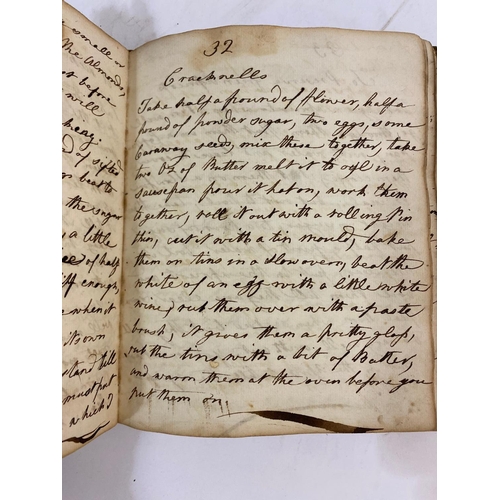 small or
The Almonds,
before
will
heaz:
of sifted
beat to
the sugar
a little
of half
enough,
when it
its own
stand till
must put
a thick?
32
Cracknells
Take half a pound of flower, half a
pound of powder sugar, two eggs, some
Caraway seeds, mix these together, take
two Oz of Butter melt it to oyl in a
sausepan pour it hot on, work them
together, roll it out with a rolling Pin
thin, cut it with a tin mould, bake
them on tins in a slow oven, beat the
white of an egg with a little white
wine, rub them over with a paste
brush, it gives them a pretty gloss,
rub the tins with a bit of Butter,
and warm them at the oven before you
put them on